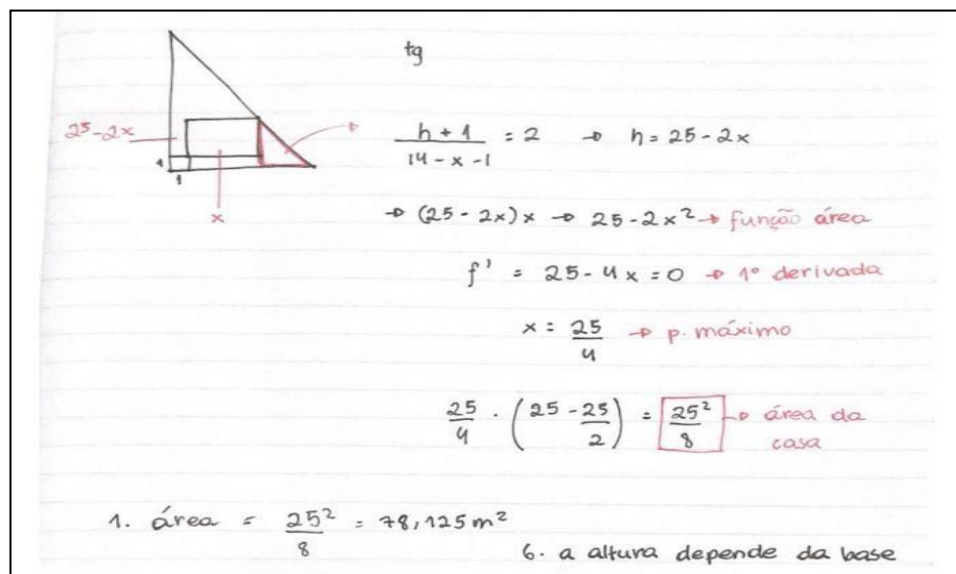 tg
25-2x
1
1
x
h + 1 / 14 - x - 1 = 2 → h = 25 - 2x
→ (25 - 2x)x → 25 - 2x² → função área
f' = 25 - 4x = 0 → 1º derivada
x = 25/4 → p. máximo
25/4 . (25 - 25/2) = 25²/8 → área da
casa
1. área = 25²/8 = 78,125 m²
6. a altura depende da base